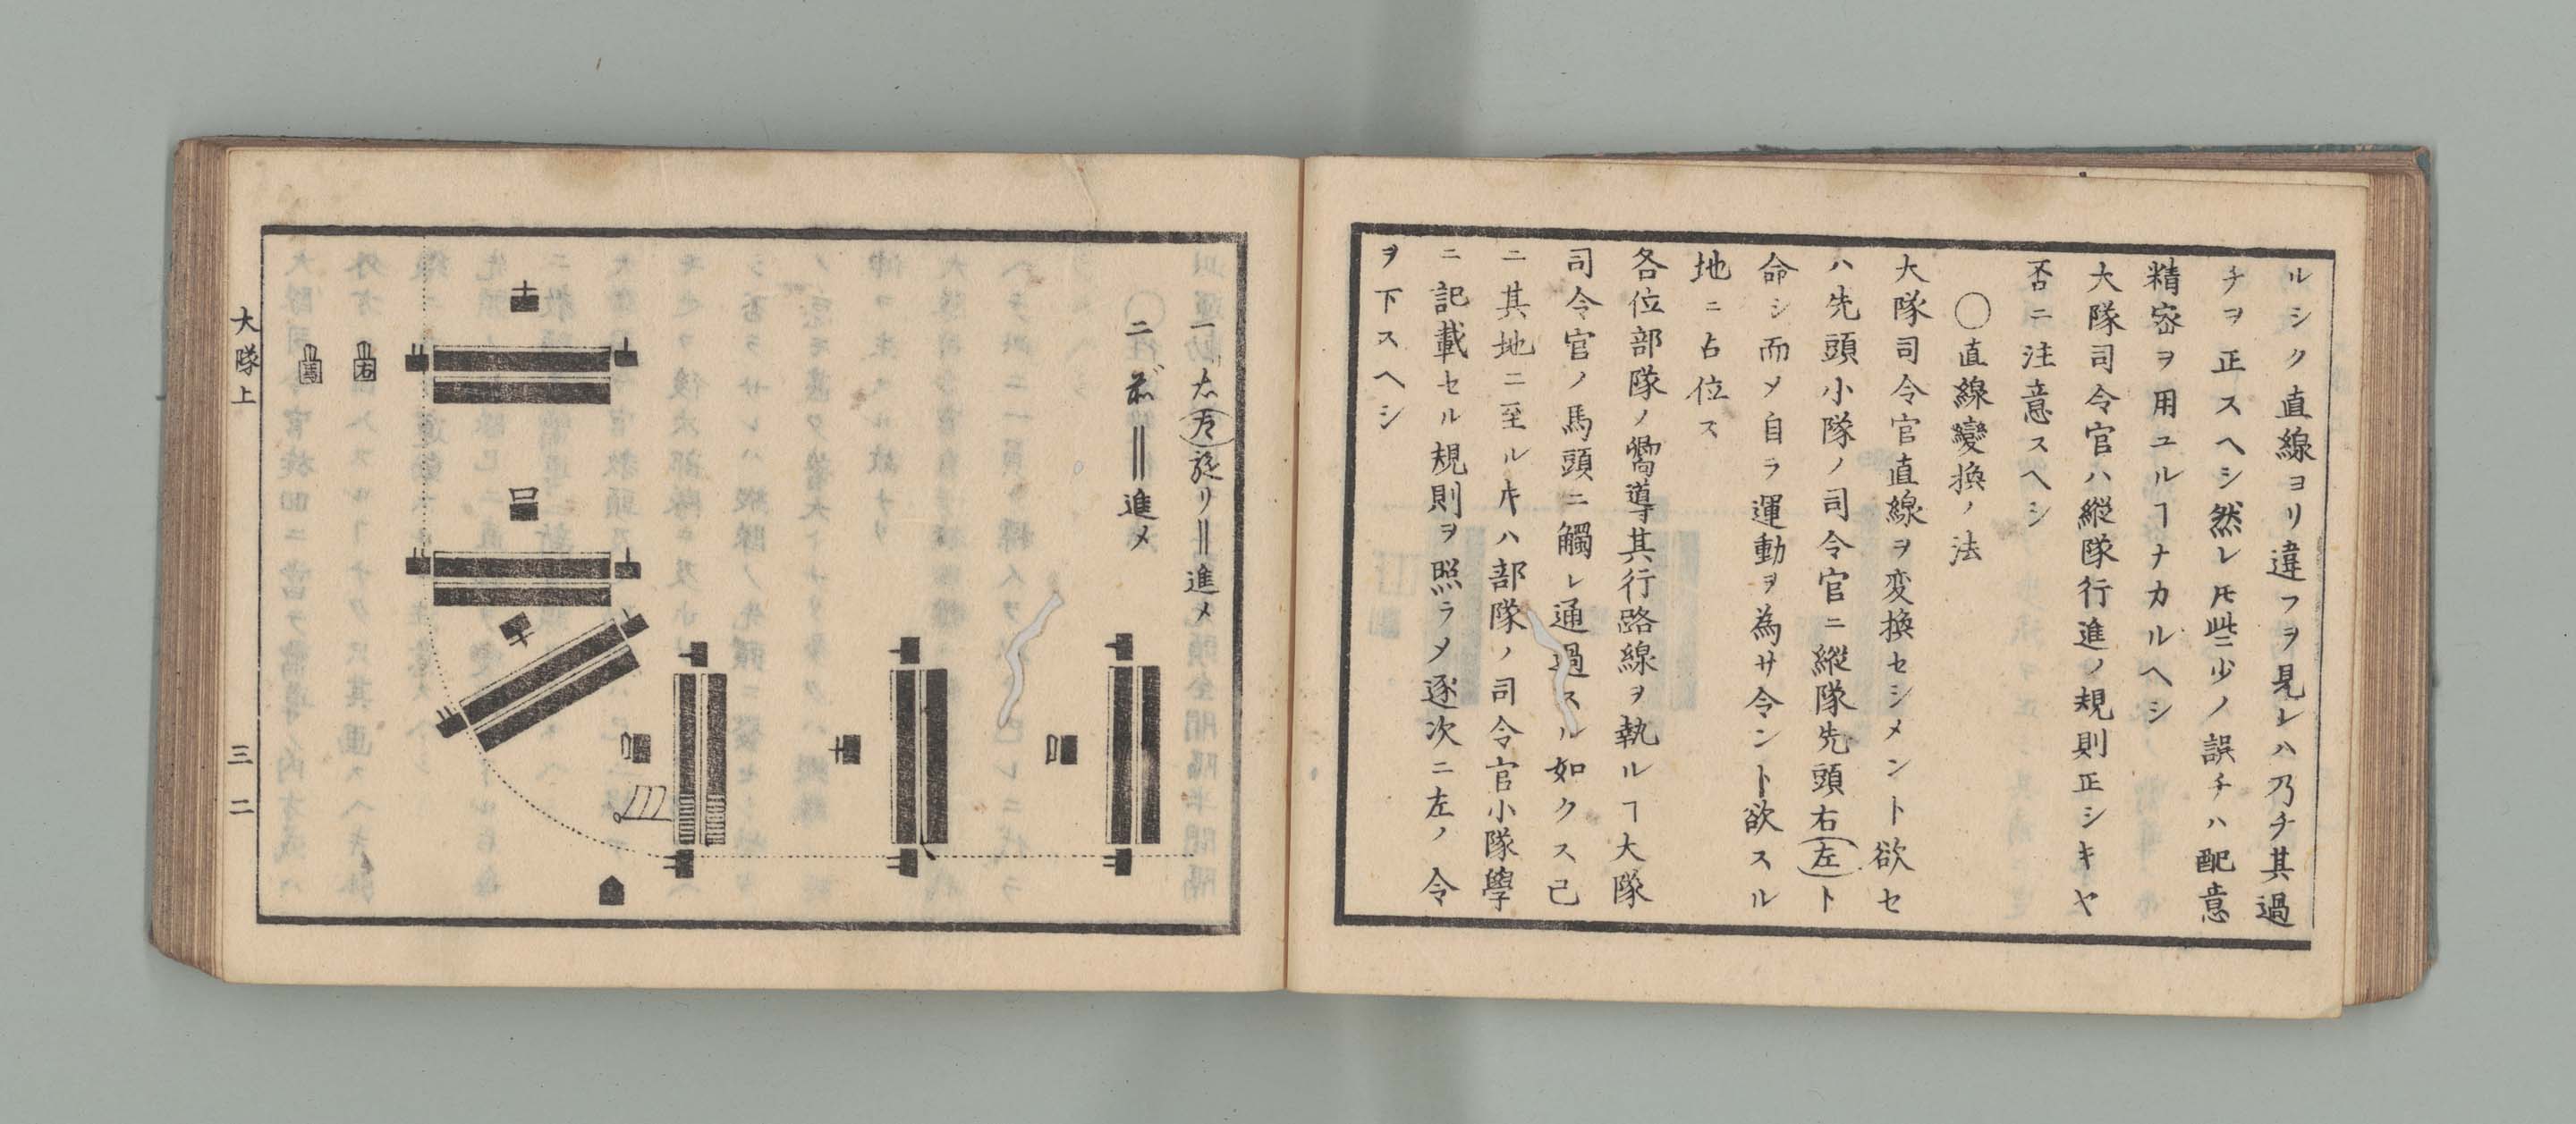 ルシク直線ヨリ違フヲ見レハ乃チ其過
チヲ正スヘシ然レ𪜈些少ノ誤チハ配意
精密ヲ用ユルヿナカルヘシ
大隊司令官ハ縦隊行進ノ規則正シキヤ
否ニ注意スヘシ
〇直線變換ノ法
大隊司令官直線ヲ変換セシメント欲セ
ハ先頭小隊ノ司令官ニ縦隊先頭右(左)ト
命シ而メ自ラ運動ヲ為サ令ント欲スル
地ニ占位ス
各位部隊ノ嚮導其行路線ヲ執ルヿ大隊
司令官ノ馬頭ニ觸レ通過スル如クス已
ニ其地ニ至ルキハ部隊ノ司令官小隊學
ニ記載セル規則ヲ照ラメ逐次ニ左ノ令
ヲ下スヘシ
一右(左)旋リ‖進メ
二前‖進メ
右
嚮
大隊上
三二